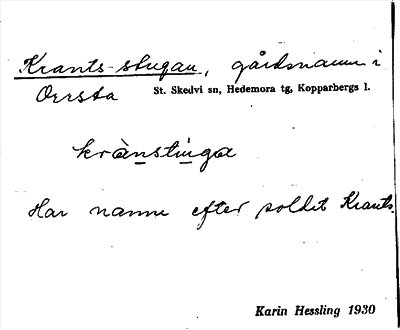 Krants-stugan, gårdsnamn i
Orrsta St. Skedvi sn, Hedemora tg, Kopparbergs l.
krànstinga
Har namn efter soldat Krants.
Karin Hessling 1930